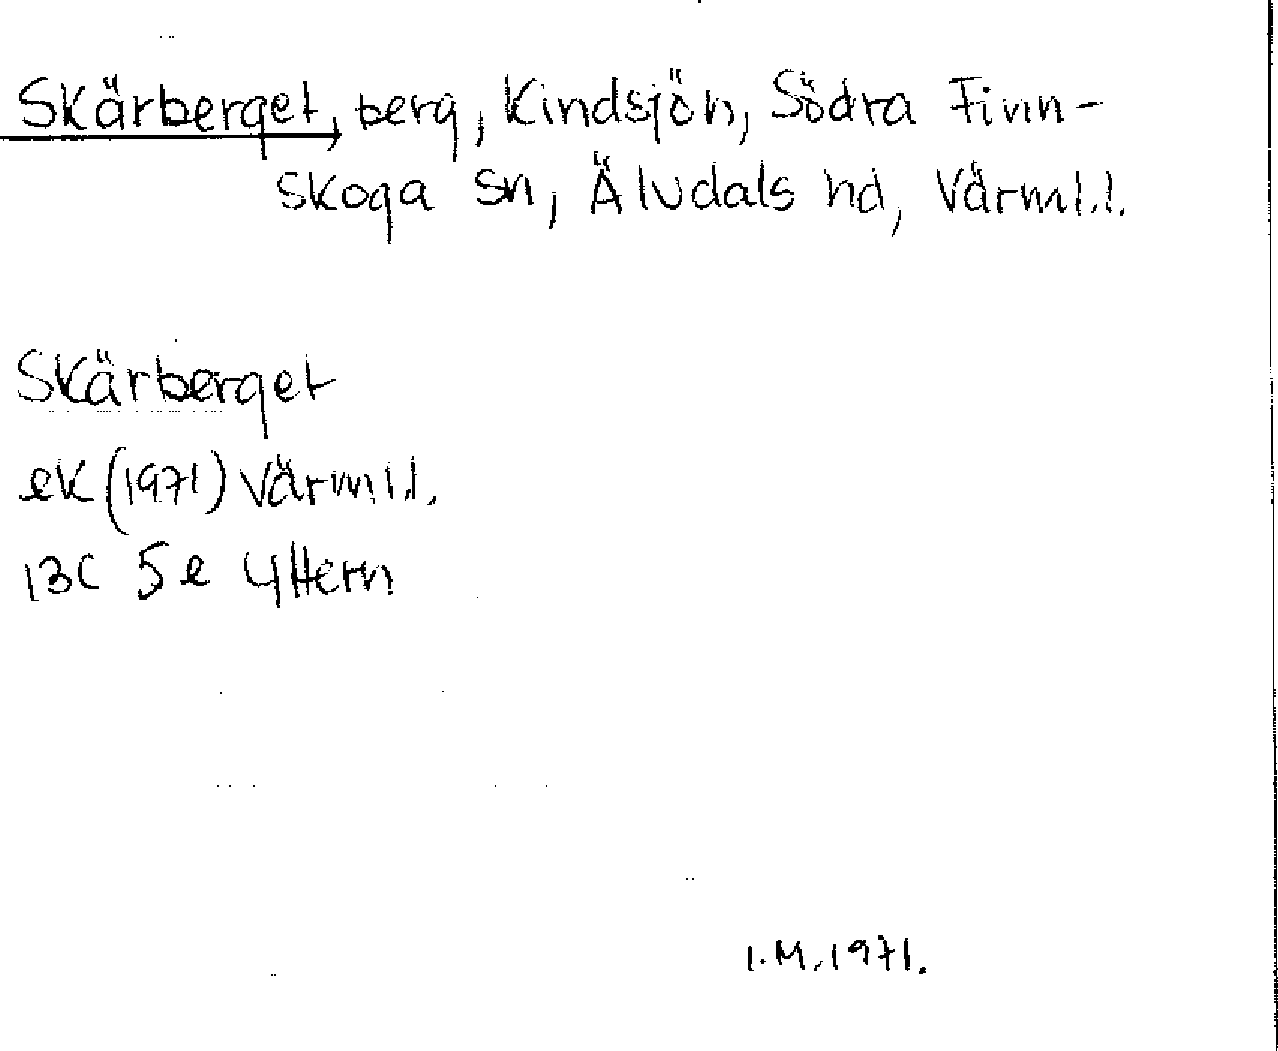 Skärberget, berg, Kindsjön, Södra Finn-
skoga sn, Älvdals hd, Värml.l.
Skärberget
ek (1971) Värml.l.
13C 5e Yttern
I.M. 1971.